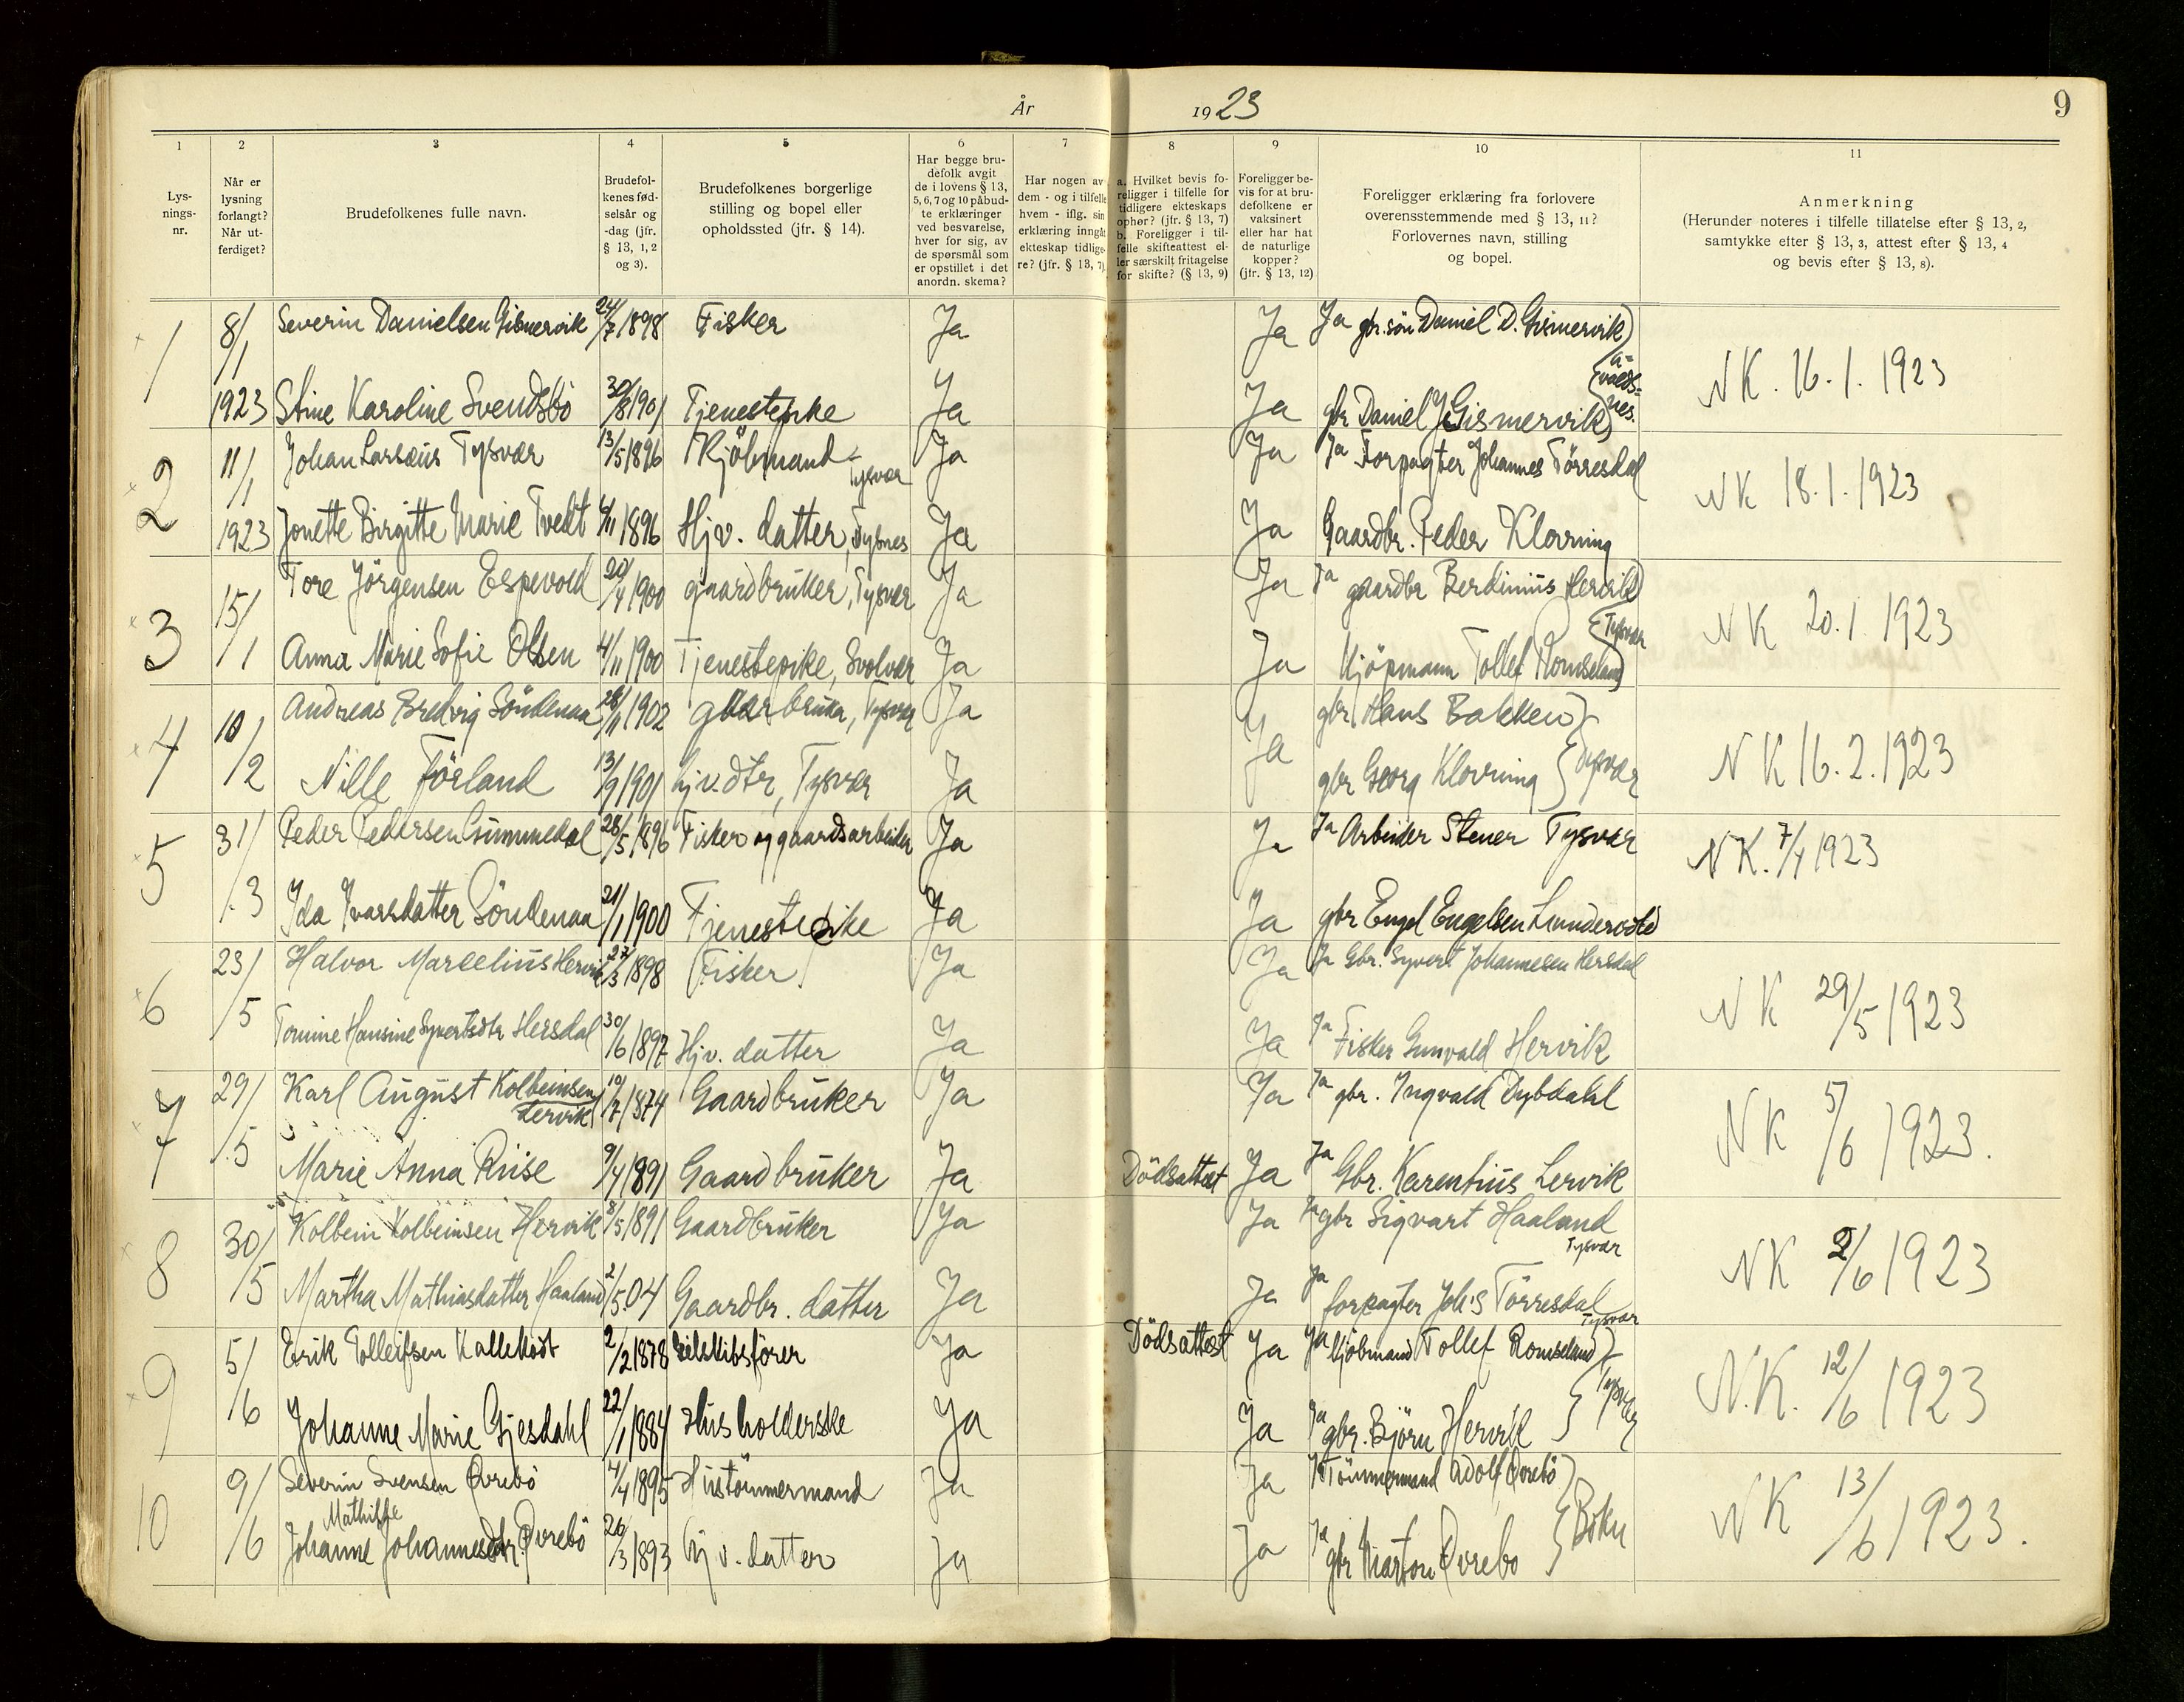 År 1923
9
1
2
3
4
5
6
7
8
9
10
11
Lys-
nings-
nr.
Når er
lysning
forlangt?
Når ut-
ferdiget?
Brudefolkenes fulle navn.
Brudefol-
kenes fød-
selsår og
-dag (jfr.
§ 13, 1, 2
og 3).
Brudefolkenes borgerlige
stilling og bopel eller
opholdssted (jfr. § 14).
Har begge bru-
defolk avgit
de i lovens § 13,
5, 6, 7 og 10 påbud-
te erklæringer
ved besvarelse,
hver for sig, av
de spørsmål som
er opstillet i det
anordn. skema?
Har nogen av
dem - og i tilfelle
hvem - iflg. sin
erklæring inngåt
ekteskap tidlige-
re? (jfr. § 13, 7)
a. Hvilket bevis fo-
religger i tilfelle for
tidligere ekteskaps
ophør? (jfr. § 13, 7)
b. Foreligger i til-
felle skifteattest el-
ler særskilt fritagelse
for skifte? (§ 13, 9)
Foreligger be-
vis for at bru-
defolkene er
vaksinert
eller har hat
de naturlige
kopper?
(jfr. § 13, 12)
Foreligger erklæring fra forlovere
overensstemmende med § 13, 11?
Forlovernes navn, stilling
og bopel.
Anmerkning
(Herunder noteres i tilfelle tillatelse efter § 13, 2,
samtykke efter § 13, 3, attest efter § 13, 4
og bevis efter § 13, 8).
1 8/1 Severin Danielsen Gismervik 24/7 1898 Fisker Ja Ja Ja gbr. søn Daniel D. Gismervik
1923 Stine Karoline Svendsbö 30/8 1901 Tjenestepike Ja Ja gbr Daniel J Gismervik
NK. 16.1.1923
2 11/1 Johan Larsæus Tysvær 13/5 1896 Kjöbmand Tysvær Ja Ja Ja Forpagter Johannes Törresdal
1923 Jonette Birgitte Marie Tvedt 4/11 1896 Hjv. datter, Ja Ja Gaardbr. Peder Klovning
NK 18.1.1923
3 15/1 Tore Jörgensen Espevold 20/4 1900 gaardbruker, Tysvær Ja Ja Ja gaardbr Berdinius Hervik
Anna Marie Sofie Olsen 4/11 1900 Tjenestepike, Svolvær Ja Ja Kjöpmann Tollef Romseland
Tysvær
NK 20.1.1923
4 10/2 Andreas Bredvig Söndenaa 28/11 1902 gaarbruker, Tysvær Ja Ja gbr Hans Bakken
Nille Förland 13/9 1901 hjv.dtr, Tysvær Ja gbr Georg Klovning Tysvær
NK 16.2.1923
5 31/3 Peder Pedersen Grimmedal 28/5 1896 Fisker og gaardsarbeider Ja Ja Ja Arbeider Stener Tysvær
Ida Ivarsdatter Söndenaa 21/1 1900 Tjenestepike Ja Ja gbr Engel Engelsen Lundevold
NK. 7/4 1923
6 23/5 Halvor Marcelius Hervik 27/3 1898 Fisker Ja Ja Ja Gbr. Syvert Johannesen Hersdal
Tomine Hansine Syvertsdtr Hersdal 30/6 1897 Hjv. datter Ja Ja Ja Fisker Gunvald Hervik
NK 29/5 1923
7 29/5 Karl August Kolbeinsen Lervik 10/7 1874 Gaardbruker Ja Ja Ja gbr. Ingvald Dybdahl
Marie Anna Riise 9/4 1891 Gaardbruker Ja Dödsattest Ja Ja Gbr. Karentius Lervik
NK 5/6 1923.
8 30/5 Kolbein Kolbeinsen Hervik 8/5 1891 Gaardbruker Ja Ja Ja gbr Sigvart Haaland
Tysvær
Martha Mathiasdatter Haaland 2/5.04 Gaardbr. datter Ja Ja Ja forpagter Joh's Törresdal
Tysvær
NK 2/6 1923
9 5/6 Erik Tolleifsen Kallekodt 2/2 1878 Seilskibsförer Ja Dödsattest Ja Ja Kjöbmand Tollef Romseland
Johanne Marie Gjesdahl 22/1 1884 Husholderske Ja Ja Ja gbr. Björn Hervik Tysvær
N.K. 12/6 1923
10 9/6 Severin Svensen Övrebö 4/4 1895 Hustömmermand Ja Ja Ja Tömmermand Adolf Övrebö
Mathilde
Johanne Johannesdtr. Övrebö 26/3 1893 hjv. datter Ja Ja Ja gbr Marton Övrebö Bokn
NK 13/6 1923.